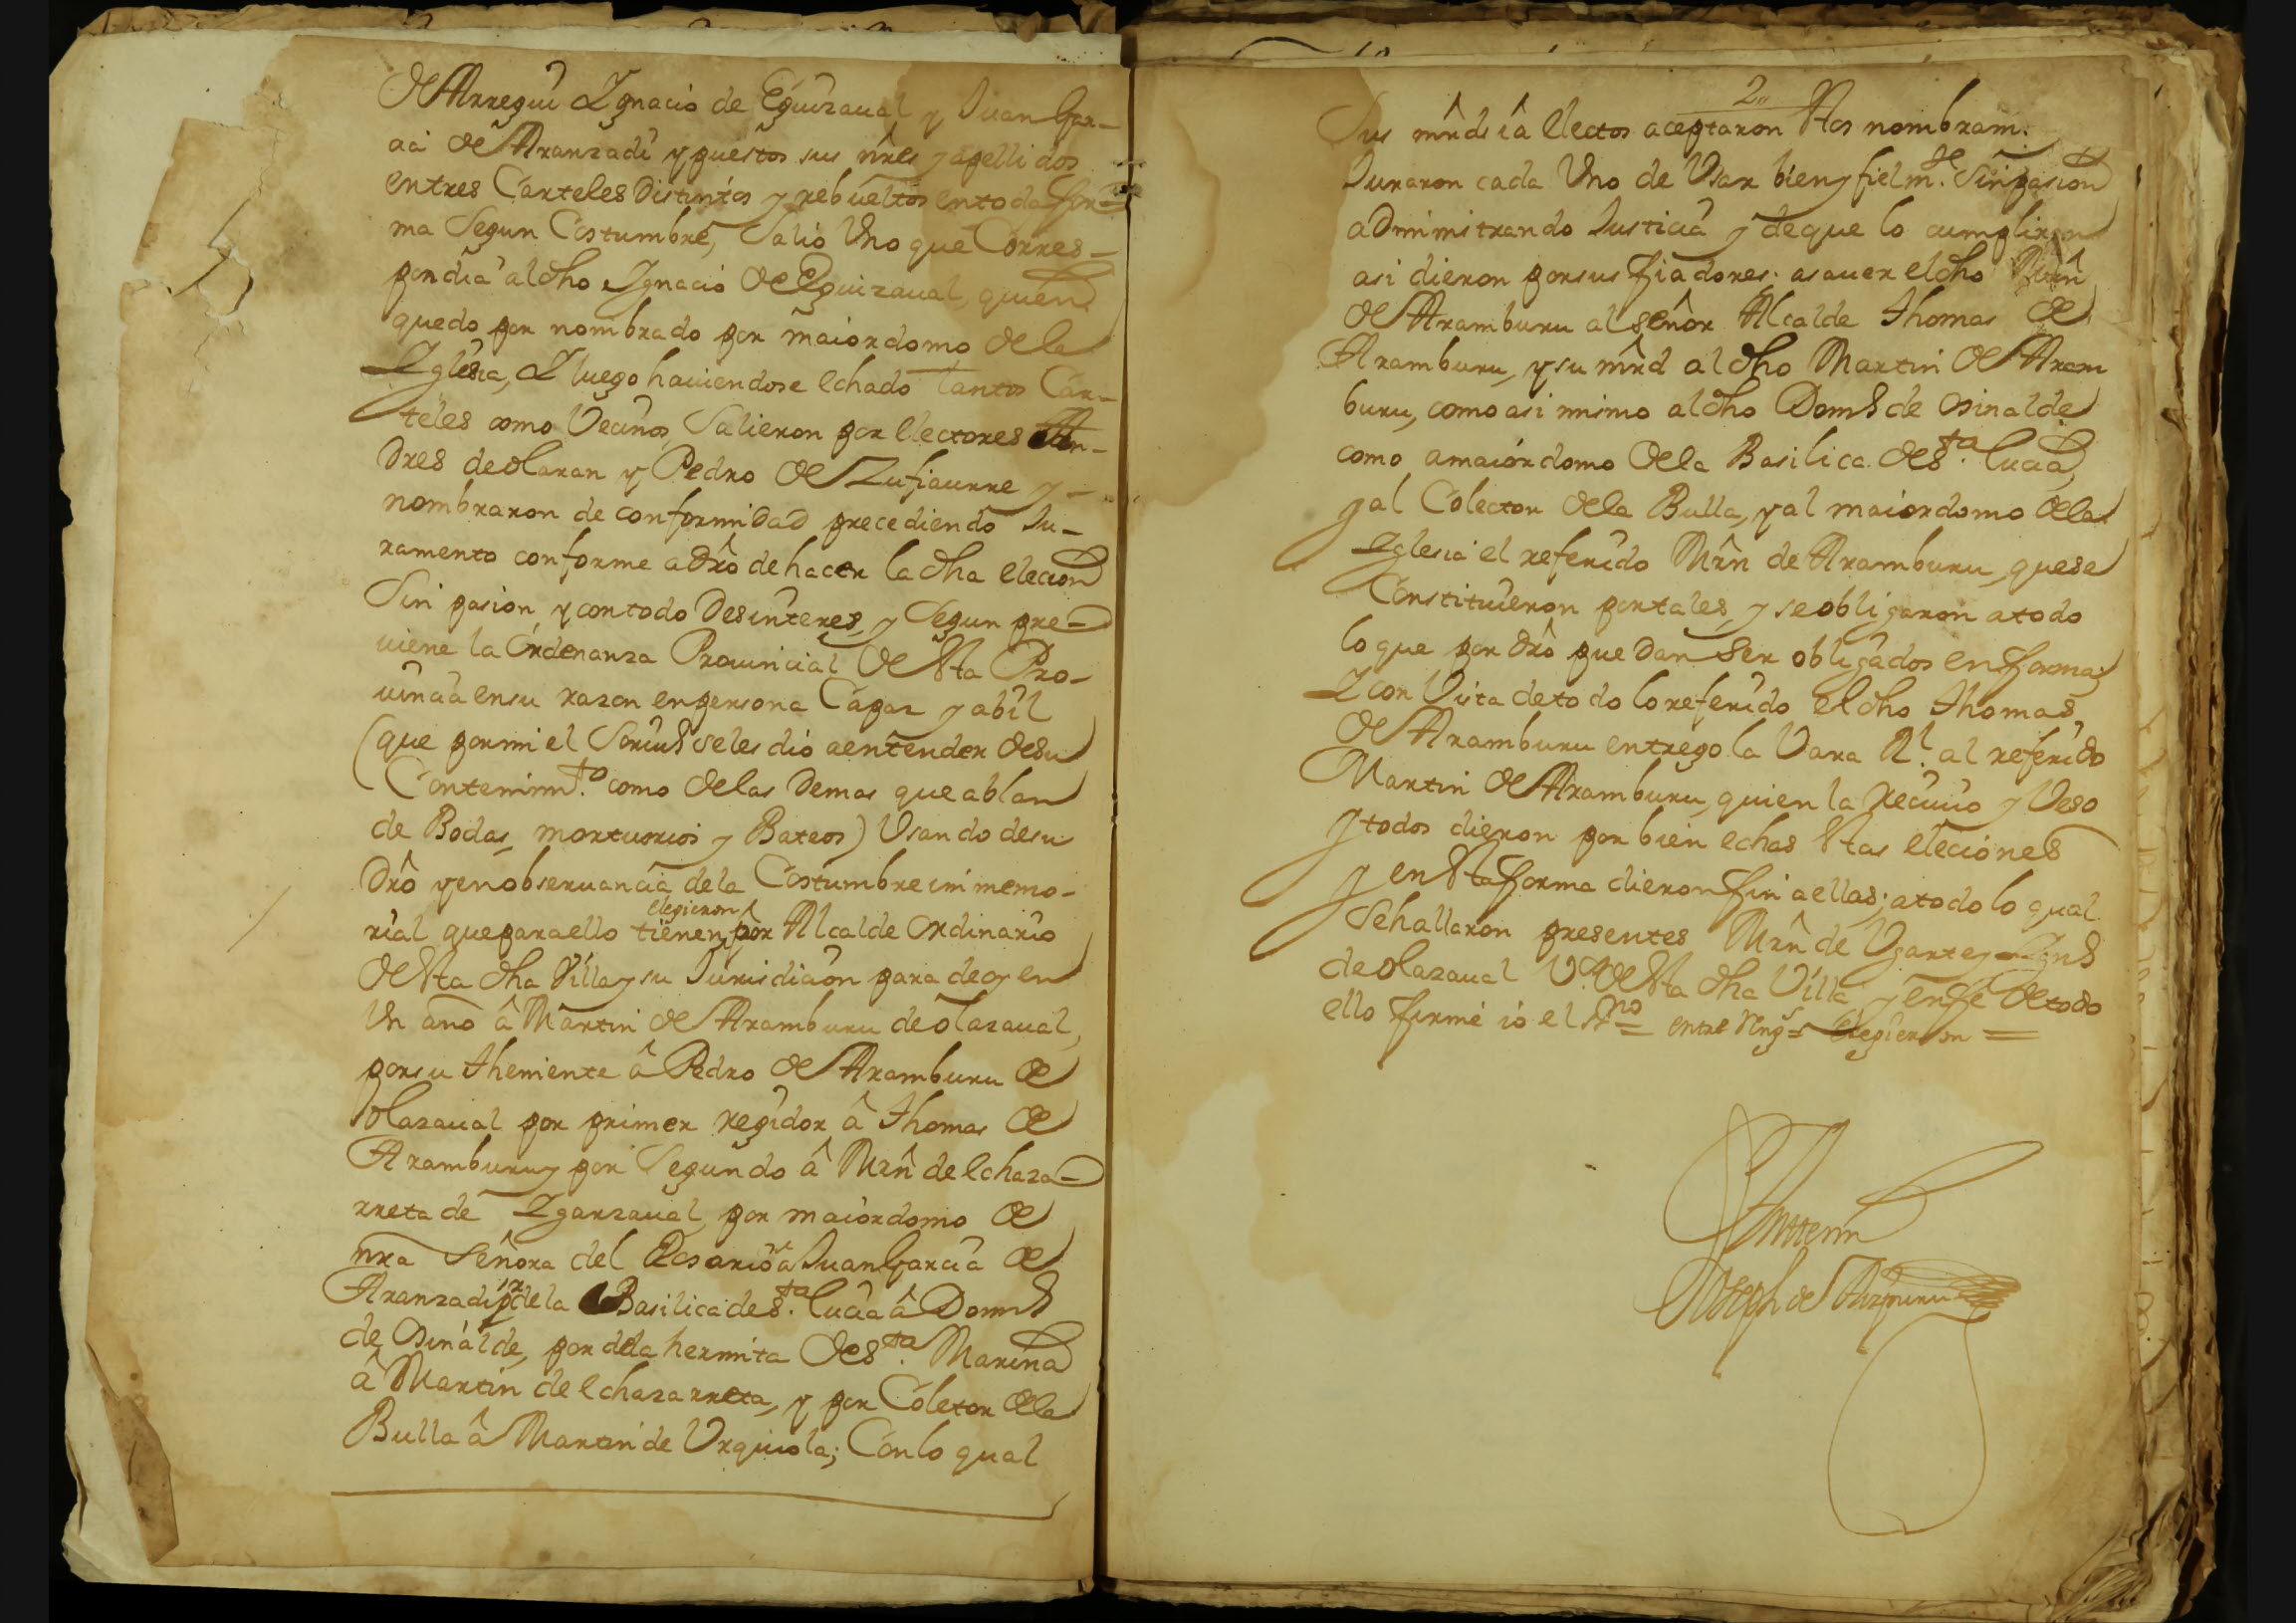 de Arregui Ygnacio de Eguizaual y Juan Gar-
cia de Aranzadi y puestos sus nrēs y apellidos
en tres Carteles Distintos y rebueltos en toda for-
ma Segun Costumbre, Salio Uno que Corres-
pondia al dho Ygnacio de Eguizaual, quien
quedo por nombrado por maiordomo de la
Yglesia, Y luego hauiendose echado tantos Car-
teles como Vecinos, Salieron por Electores An-
dres de olaran y Pedro de Zufiaurre y -
nombraron de conformidad precediendo Ju-
ramento conforme a drô de hacer la dha elecion
Sin pasion, y con todo Desinteres, y Segun pre-
uiene la Ordenanza Prouincial de esta Pro-
uincia en su razon en persona Capaz y abil
(que por mi el Scriuº se les dió a entender de su
Contenimto. como de las Demas que ablan
de Bodas, mortuorios y Bateos) Usando de su
Drô y en obseruancia de la Costumbre immemo-
rial que para ello tienen, elegieron por Alcalde Ordinario
de esta dha Villa y su Jurisdicion para de oy en
Un año â Martin de Aramburu de olazaual,
por su theniente â Pedro de Aramburu de
olazaual por primer regidor â Thomas de
Aramburu y por Segundo â Mrn̂ de Echaza-
rreta de Yganzaual, por maiordomo de
nra Señora del Rosario â Juan Garcia de
Aranzadi, pr de la Basilica de Sta. Lucia â Domº
de Osinalde, por dela hermita de Sta. Marina
â Martin de Echazarreta, y por Coletor de la
Bulla â Martin de Urquiola; Con lo qual
2
Sus mrds iâ Electos aceptaron estos nombram.tos
Juraron cada Uno de Usar bien y fielm.te Sin pasion
administrando Justicia y de que lo cumpliran
asi dieron por sus fiadores: asauer el dho Mrn̂
de Aramburu al señor Alcalde Thomas de
Aramburu, y su mrd al dho Martin de Aram
buru, como asi mimo al dho Domº de Osinalde
como a maiordomo de la Basilica de Sta. Lucia,
y al Colector de la Bulla, y al maiordomo de la
Yglesia el referido Mrn̂ de Aramburu, que se
Constituieron por tales, y se obligaron a todo
lo que por drô puedan ser obligados en forma;
Y con Vista de todo lo referido el dho Thomas
de Aramburu entrego la Vara Rl. al referido
Martin de Aramburu, quien la Reciuio y Veso
y todos dieron por bien echas estas eleciones
y en esta forma dieron fin a ellas; a todo lo qual
se hallaron presentes Mrn̂ de Ugarte y Ygnº
de olazaual Vos. de esta dha Villa y en fe de todo
ello firmé io el Ssno = entre Rengs = elegieron =
Antte mi
Joseph de Aizpuru